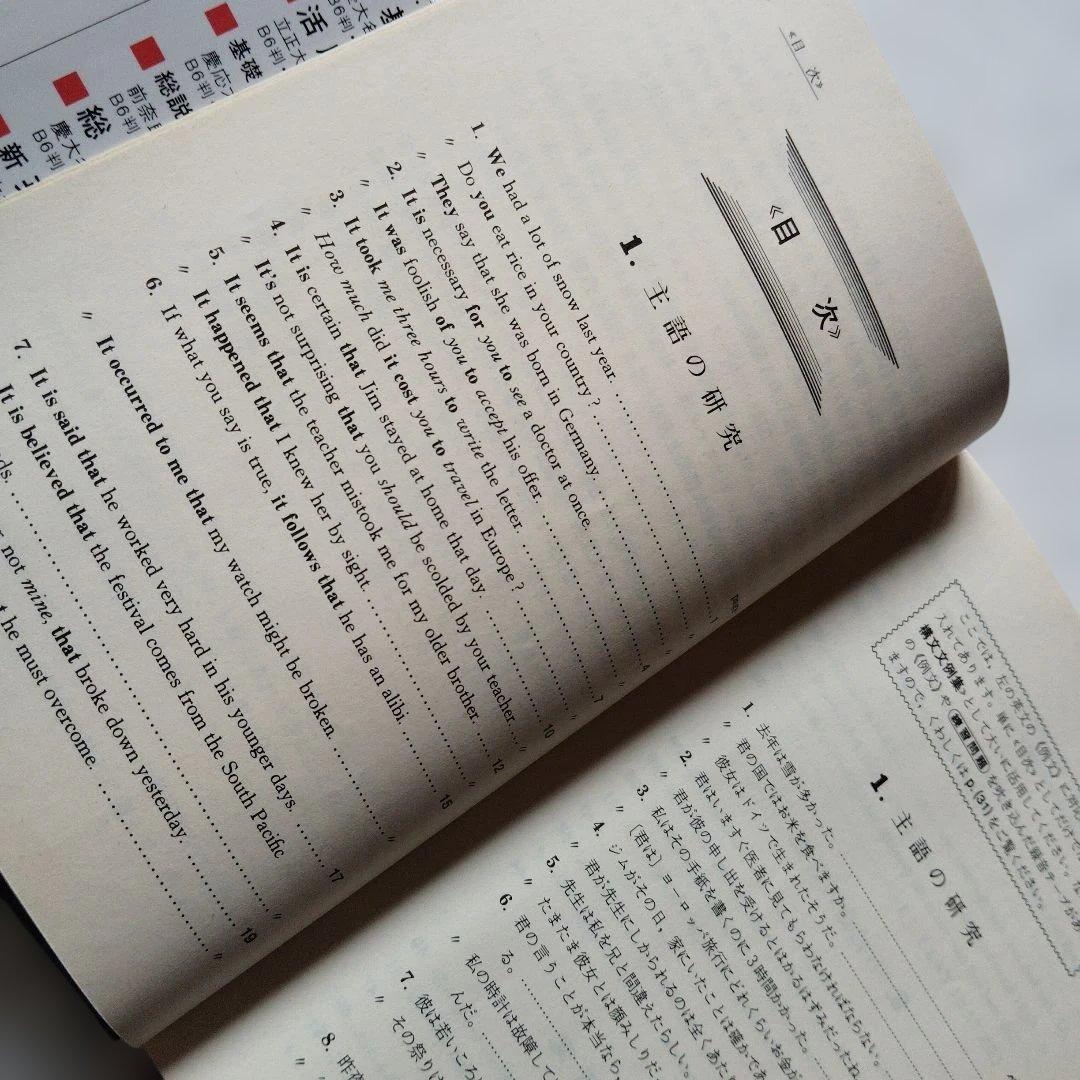 《目 次》
《目 次》
1. 主語の研究
1. We had a lot of snow last year. 1
〃 Do you eat rice in your country? 〃
〃 They say that she was born in Germany 〃
2. It is necessary for you to see a doctor at once. 4
〃 It was foolish of you to accept his offer. 〃
3. It took me three hours to write the letter. 7
〃 How much did it cost you to travel in Europe? 〃
4. It is certain that Jim stayed at home that day. 10
〃 It's not surprising that you should be scolded by your teacher. 〃
5. It seems that the teacher mistook me for my older brother. 12
〃 It happened that I knew her by sight. 〃
6. If what you say is true, it follows that he has an alibi. 15
〃 It occurred to me that my watch might be broken. 〃
7. It is said that he worked very hard in his younger days. 17
It is believed that the festival comes from the South Pacific
19
not mine, that broke down yesterday 〃
he must overcome. 〃
ここでは, 左の英文の《例文》に
入れてあります。
構文文例集》として大いに活用してください。
の《例文》や 練習問題 を吹き込んだ録音テープが
ますので, くわしくは p.(31)をご覧ください。
1. 主語の研究
1. 去年は雪が多かった。
〃 君の国ではお米を食べますか。
〃 彼女はドイツで生まれたそうだ。
2. 君はいますぐ医者に見てもらわなければならない。
〃 君が彼の申し出を受けるとはばかげたことだったね
3. 私はその手紙を書くのに3時間かかった。
〃 〔君は〕ヨーロッパ旅行にどれくらいお金が
4. ジムがその日, 家にいたことは確かであ
〃 君が先生にしかられるのは全くあた
5. 先生は私を兄と間違えたらしい。
〃 たまたま彼女とは顔みしりだっ
6. 君の言うことが本当なら,
る。
〃 私の時計は故障して
んだ。
7. 彼は若いころ
〃 その祭りは
8. 昨夜
活
基礎
総説
総
新
B6判
B6判
B6判
B6判